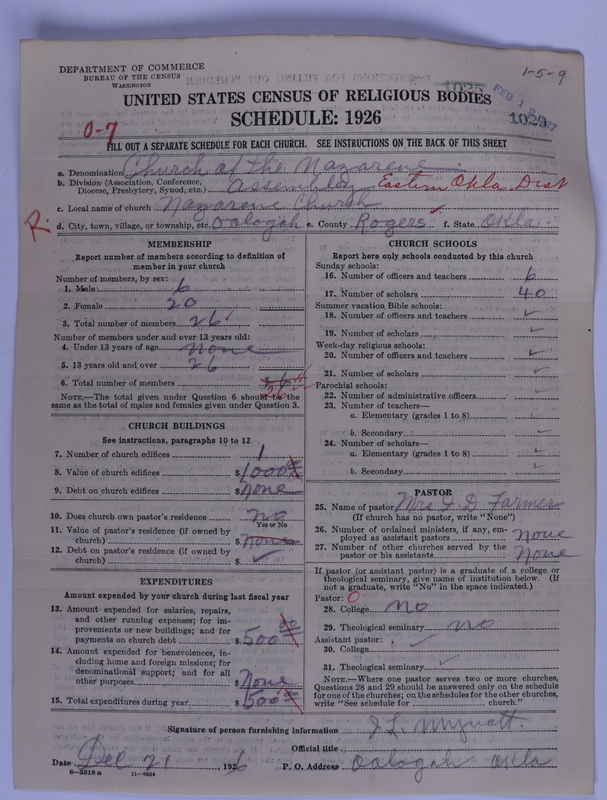 DEPARTMENT OF COMMERCE
BUREAU OF THE CENSUS
WASHINGTON
1-5-9
1025
FEB 1 1927
1029
UNITED STATES CENSUS OF RELIGIOUS BODIES
SCHEDULE: 1926
0-7
FILL OUT A SEPARATE SCHEDULE FOR EACH CHURCH. SEE INSTRUCTIONS ON THE BACK OF THIS SHEET
a. Denomination Church of the Nazarene
b. Division (Association, Conference, Diocese, Presbytery, Synod, etc.) Assembley Eastern Okla. Dist
c. Local name of church Nazarene Church
R.
d. City, town, village, or township, etc. Oologah e. County Rogers f. State Okla.
MEMBERSHIP
Report number of members according to definition of
member in your church
Number of members, by sex:
1. Male 6
2. Female 20
3. Total number of members 26
Number of members under and over 13 years old:
4. Under 13 years of age None
5. 13 years old and over 26
6. Total number of members 26
NOTE.—The total given under Question 6 should be the
same as the total of males and females given under Question 3.
CHURCH BUILDINGS
See instructions, paragraphs 10 to 12
7. Number of church edifices 1
8. Value of church edifices $1000
9. Debt on church edifices $None
10. Does church own pastor's residence No
Yes or No
11. Value of pastor's residence (if owned by
church) $None
12. Debt on pastor's residence (if owned by
church) $ ✓
EXPENDITURES
Amount expended by your church during last fiscal year
13. Amount expended for salaries, repairs,
and other running expenses; for im-
provements or new buildings; and for
payments on church debt $500 00
14. Amount expended for benevolences, in-
cluding home and foreign missions; for
denominational support; and for all
other purposes $None
15. Total expenditures during year $500
CHURCH SCHOOLS
Report here only schools conducted by this church
Sunday schools:
16. Number of officers and teachers 6
17. Number of scholars 40
Summer vacation Bible schools:
18. Number of officers and teachers ✓
19. Number of scholars ✓
Week-day religious schools:
20. Number of officers and teachers ✓
21. Number of scholars ✓
Parochial schools:
22. Number of administrative officers ✓
23. Number of teachers—
a. Elementary (grades 1 to 8) ✓
b. Secondary ✓
24. Number of scholars—
a. Elementary (grades 1 to 8) ✓
b. Secondary ✓
PASTOR
25. Name of pastor Mrs F. D Farmer
(If church has no pastor, write "None")
26. Number of ordained ministers, if any, em-
ployed as assistant pastors None
27. Number of other churches served by the
pastor or his assistants None
If pastor (or assistant pastor) is a graduate of a college or
theological seminary, give name of institution below. (If
not a graduate, write "No" in the space indicated.)
Pastor: 0
28. College No
29. Theological seminary No
Assistant pastor:
30. College ✓
31. Theological seminary ✓
NOTE.—Where one pastor serves two or more churches,
Questions 28 and 29 should be answered only on the schedule
for one of the churches; on the schedules for the other churches,
write "See schedule for church."
Signature of person furnishing information J. L. Mynatt.
Official title
Date Dec 21 1926 P. O. Address Oologah Okla
8—5518 a 11—9654